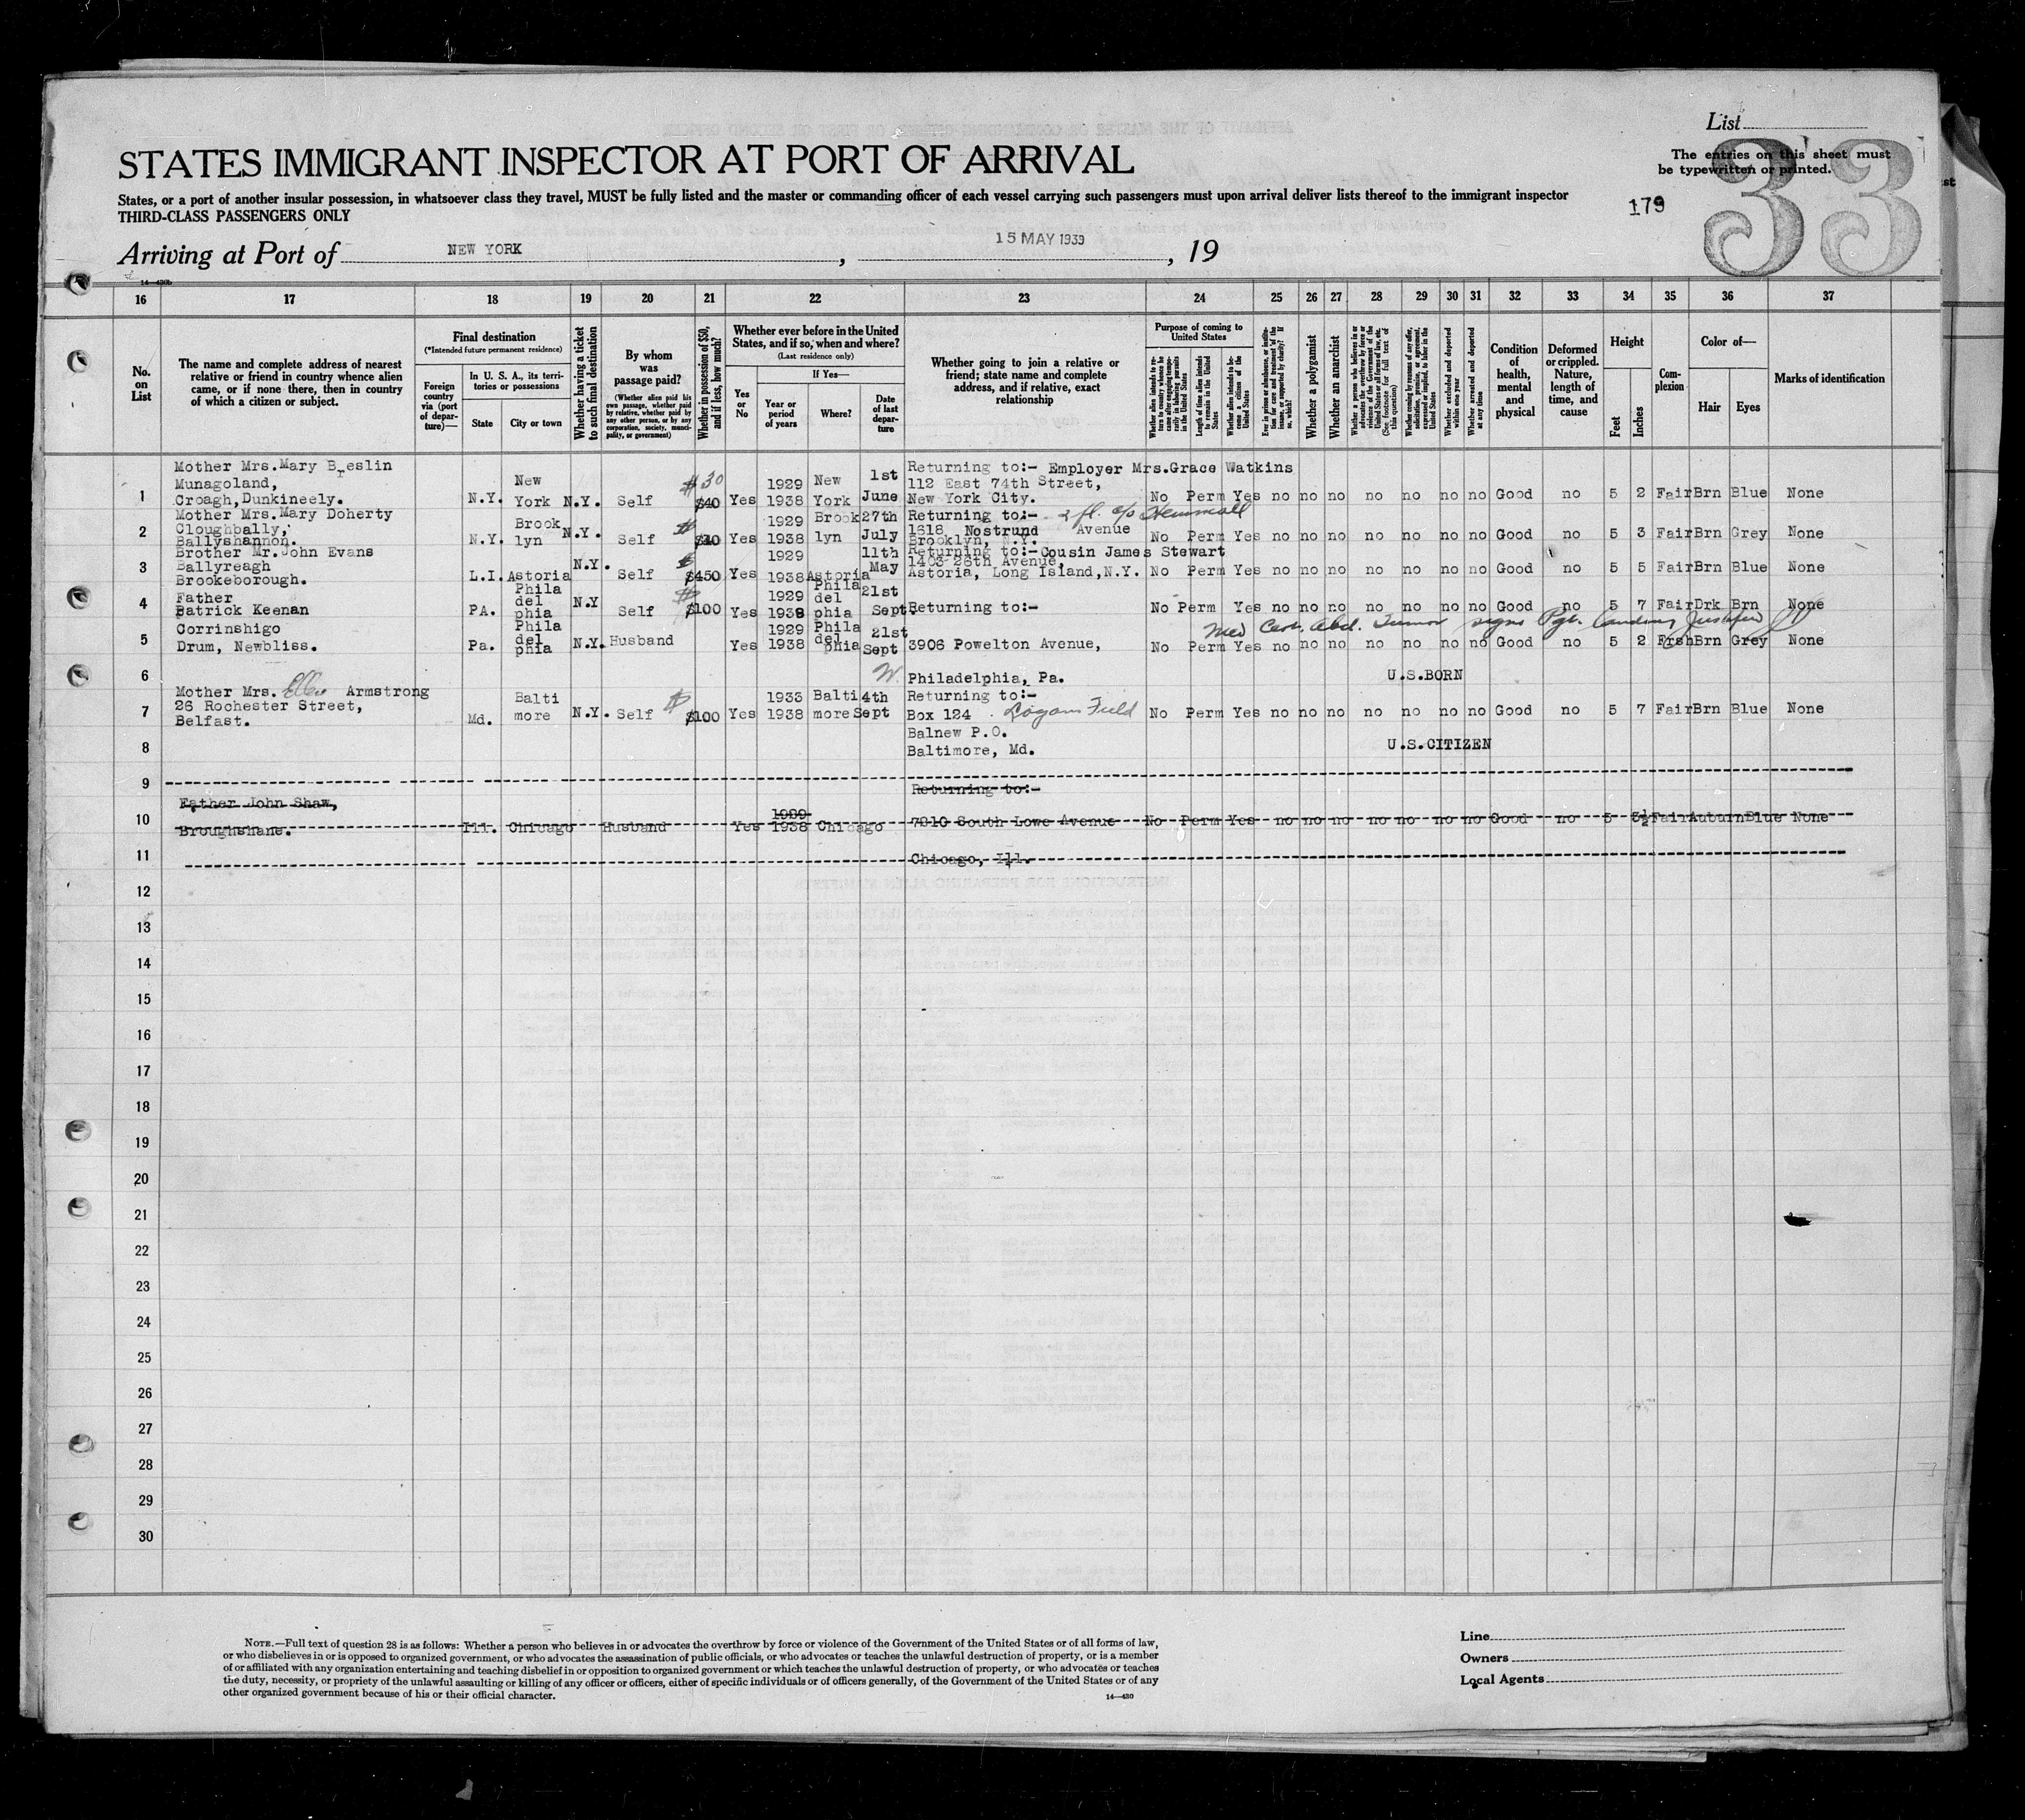 List
33
The entries on this sheet must
be typewritten or printed.
STATES IMMIGRANT INSPECTOR AT PORT OF ARRIVAL
States, or a port of another insular possession, in whatsoever class they travel, MUST be fully listed and the master or commanding officer of each vessel carrying such passengers must upon arrival deliver lists thereof to the immigrant inspector
THIRD-CLASS PASSENGERS ONLY
179
Arriving at Port of NEW YORK, 15 MAY 1939, 19
14—430b
16 17 18 19 20 21 22 23 24 25 26 27 28 29 30 31 32 33 34 35 36 37
No. on List
The name and complete address of nearest relative or friend in country whence alien came, or if none there, then in country of which a citizen or subject.
Final destination
(*Intended future permanent residence)
Foreign country via (port of departure)—
In U. S. A., its territories or possessions
State
City or town
Whether having a ticket to such final destination
By whom was passage paid?
(Whether alien paid his own passage, whether paid by relative, whether paid by any other person, or by any corporation, society, municipality, or government)
Whether in possession of $50, and if less, how much?
Whether ever before in the United States, and if so, when and where?
(Last residence only)
Yes or No
If Yes—
Year or period of years
Where?
Date of last departure
Whether going to join a relative or friend; state name and complete address, and if relative, exact relationship
Purpose of coming to United States
Whether alien intends to return to country whence he came after engaging temporarily in laboring pursuits in the United States
Length of time alien intends to remain in the United States
Whether alien intends to become a citizen of the United States
Ever in prison or almshouse, or institution for care and treatment of the insane, or supported by charity? If so, which?
Whether a polygamist
Whether an anarchist
Whether a person who believes in or advocates the overthrow by force or violence of the Government of the United States or all forms of law, etc. (See footnote for full text of this question)
Whether coming by reason of any offer, solicitation, promise, or agreement, expressed or implied, to labor in the United States
Whether excluded and deported within one year
Whether arrested and deported at any time
Condition of health, mental and physical
Deformed or crippled. Nature, length of time, and cause
Height
Feet
Inches
Complexion
Color of—
Hair
Eyes
Marks of identification
Mother Mrs.Mary Breslin
Munagoland,
Croagh,Dunkineely.
1 N.Y. New York N.Y. Self $30 $40 Yes 1929 1938 New York 1st June
Returning to:- Employer Mrs.Grace Watkins
112 East 74th Street,
New York City.
No Perm Yes no no no no no no no Good no 5 2 Fair Brn Blue None
Mother Mrs.Mary Doherty
Cloughbally,
Ballyshannon.
2 N.Y. Brook lyn N.Y. Self Yes 1929 1938 Brook lyn 27th July
Returning to:- 2 fl. c/o
1618 Nostrund Avenue
Brooklyn, N.Y.
No Perm Yes no no no no no no no Good no 5 3 Fair Brn Grey None
Brother Mr.John Evans
Ballyreagh
Brookeborough.
3 L.I. Astoria N.Y. Self $450 Yes 1929 1938 Astoria 11th May
Returning to:-Cousin James Stewart
1403-26th Avenue,
Astoria, Long Island,N.Y.
No Perm Yes no no no no no no no Good no 5 5 Fair Brn Blue None
Father
Patrick Keenan
4 PA. Phila del phia N.Y Self $100 Yes 1929 1938 Phila del phia 21st Sept
Returning to:-
No Perm Yes no no no no no no no Good no 5 7 Fair Drk Brn None
Med Cert. Abd. Tumor signs Pgt. landing justified
Corrinshigo
Drum, Newbliss.
5 Pa. Phila del phia N.Y. Husband Yes 1929 1938 Phila del phia 21st Sept
3906 Powelton Avenue,
No Perm Yes no no no no no no no Good no 5 2 Frsh Brn Grey None
6 W. Philadelphia, Pa. U.S.BORN
Mother Mrs. Ellen Armstrong
26 Rochester Street,
Belfast.
7 Md. Balti more N.Y. Self $100 Yes 1933 1938 Balti more 4th Sept
Returning to:-
Box 124 Logan Field
No Perm Yes no no no no no no no Good no 5 7 Fair Brn Blue None
Balnew P.O.
8 Baltimore, Md. U.S.CITIZEN
9 Returning to:-
Father John Shaw,
Broughshane.
10 Ill. Chicago Husband Yes 1929 1938 Chicago 7810 South Lowe Avenue No Perm Yes no no no no no no no Good no 5 3½ Fair Auburn Blue None
11 Chicago, Ill.
12
13
14
15
16
17
18
19
20
21
22
23
24
25
26
27
28
29
30
NOTE.—Full text of question 28 is as follows: Whether a person who believes in or advocates the overthrow by force or violence of the Government of the United States or of all forms of law,
or who disbelieves in or is opposed to organized government, or who advocates the assassination of public officials, or who advocates or teaches the unlawful destruction of property, or is a member
of or affiliated with any organization entertaining and teaching disbelief in or opposition to organized government or which teaches the unlawful destruction of property, or who advocates or teaches
the duty, necessity, or propriety of the unlawful assaulting or killing of any officer or officers, either of specific individuals or of officers generally, of the Government of the United States or of any
other organized government because of his or their official character.
14—430
Line
Owners
Local Agents